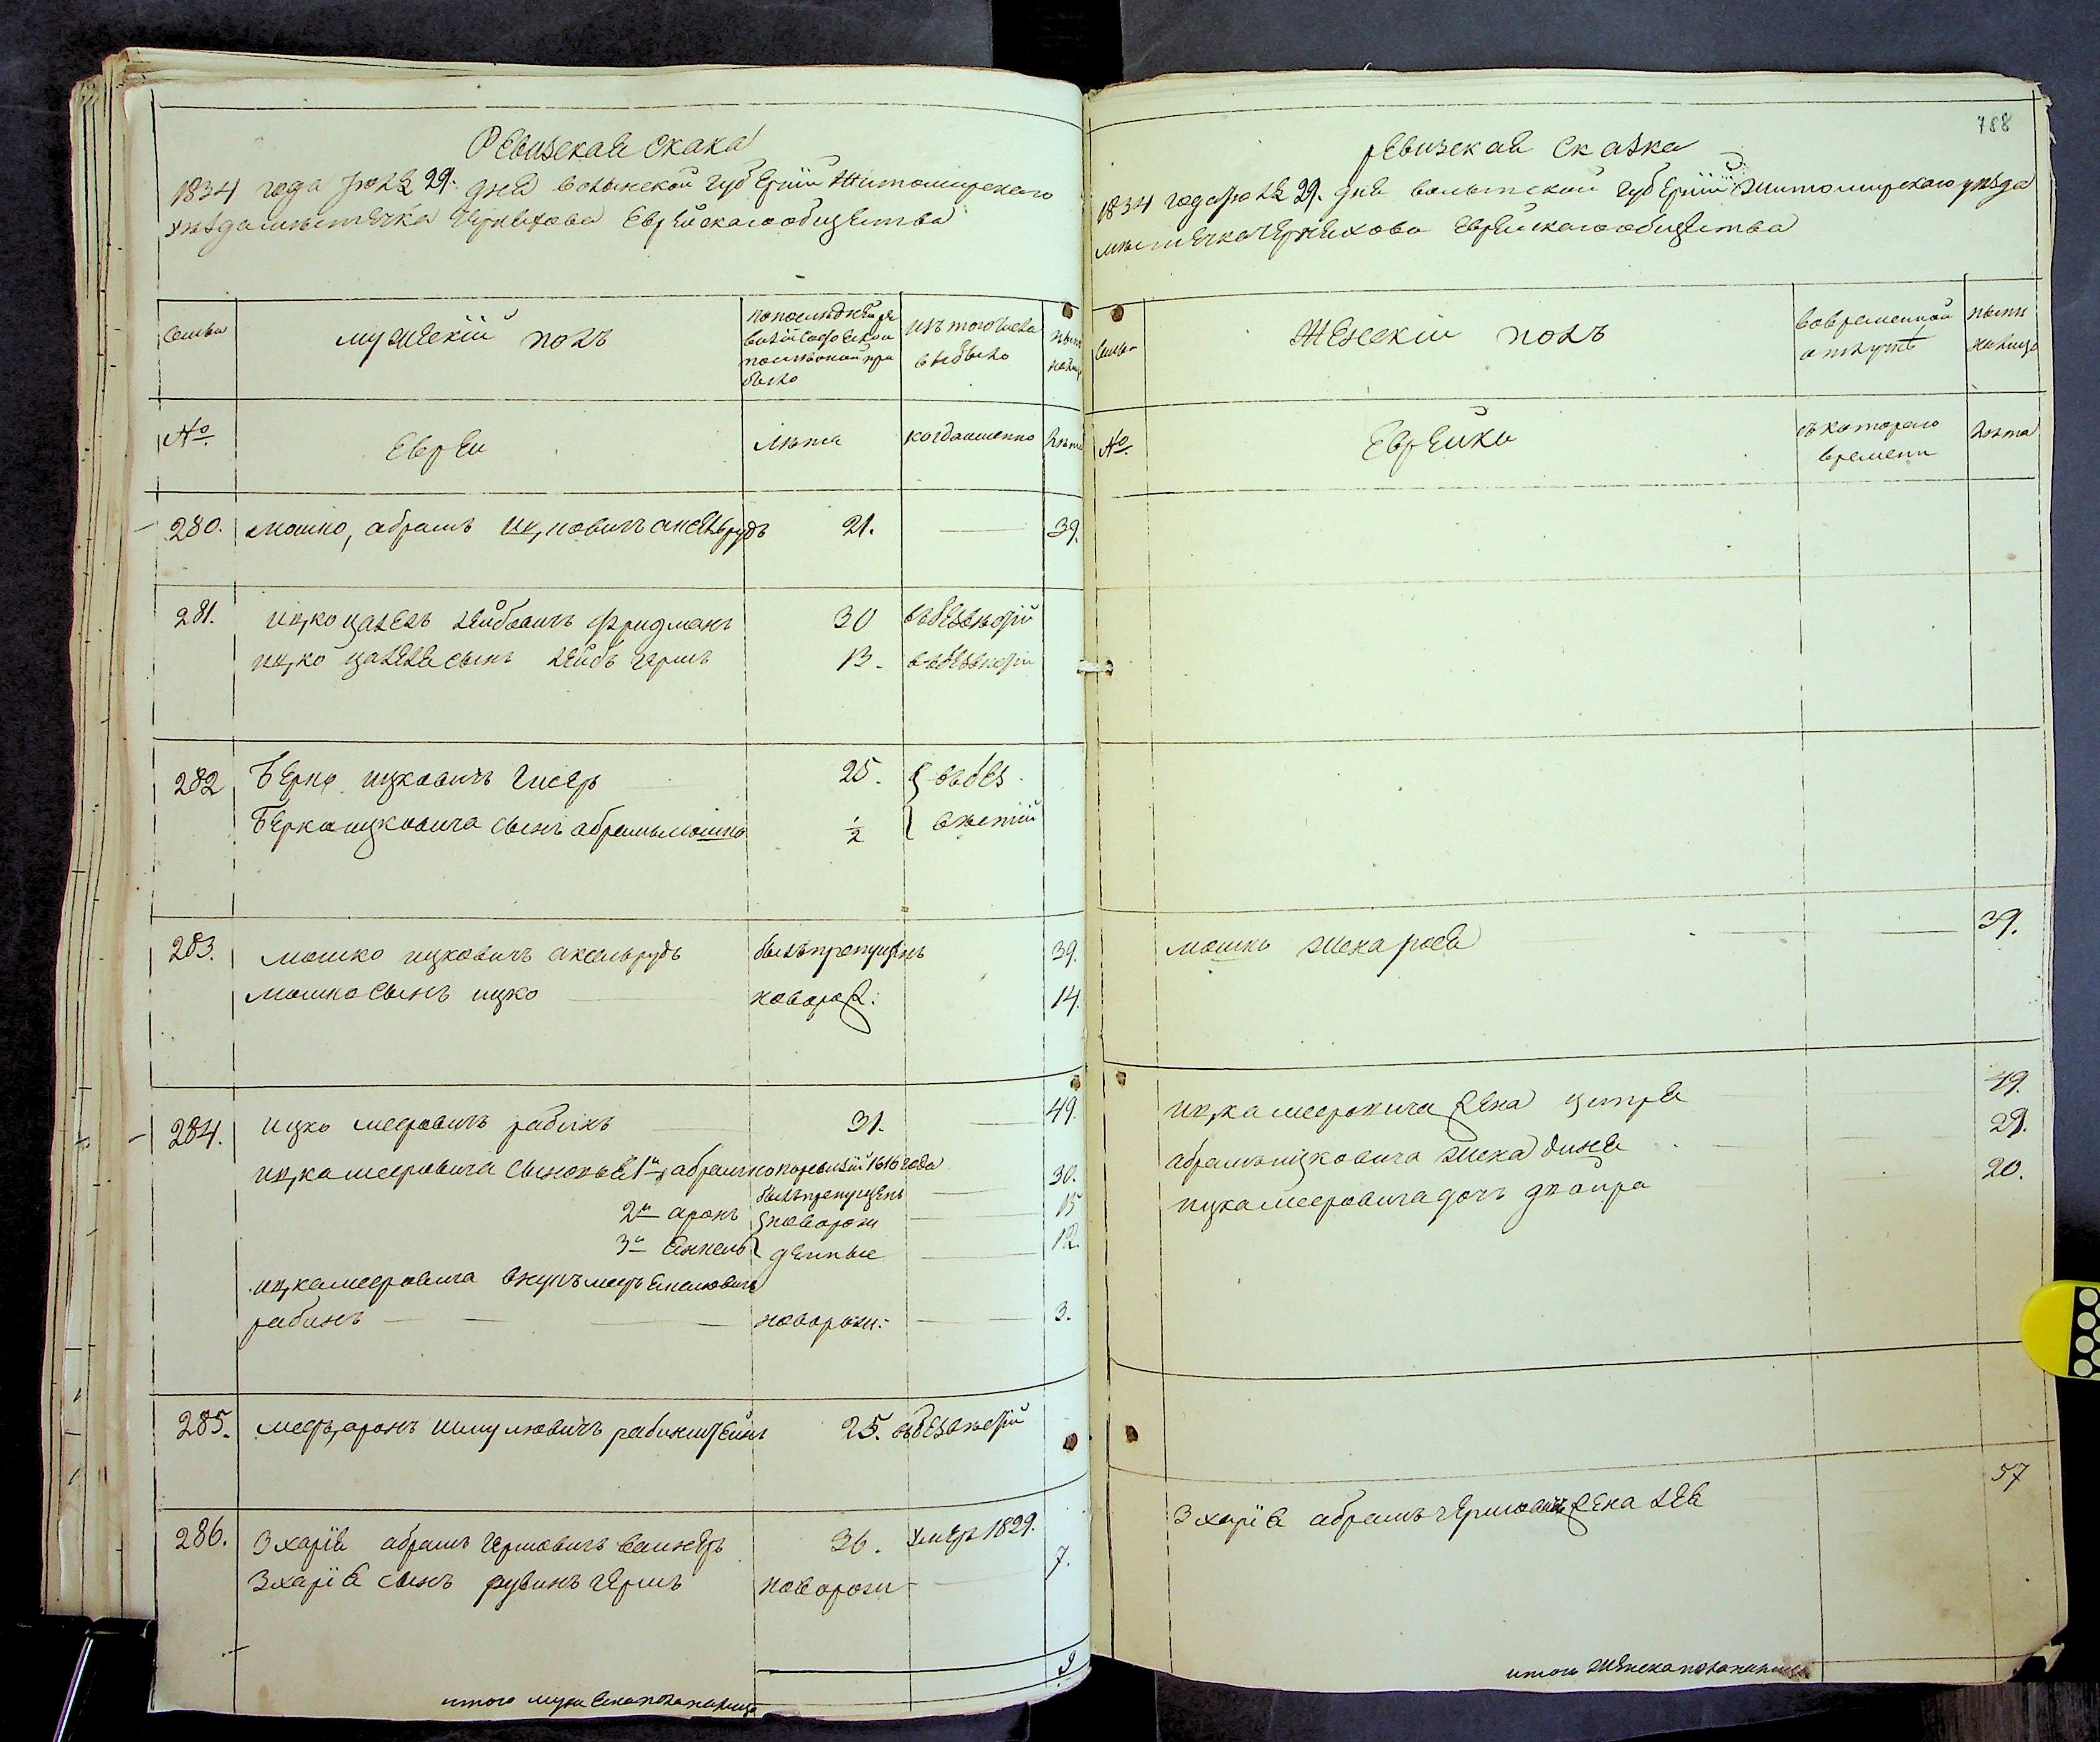 Ревизская скака
1834 года июля 29. дня волынской губерніи Житомирскаго
уѣзда мѣстечка Черняхова Еврейскаго общества
Семьи
мужескій полъ
по последней ре
визіи состояло и
после оной при
было
изъ того числа
выбыло
нынѣ
налицо
№
Евреи
лѣта
когда именно
лѣта
280. мошко, абрамъ иц,ковичъ аксельрудъ 21. — 39.
281. иц,ко цалель лейбовичъ фридманъ 30 въ безвѣстій
иц,ко цалеля сынъ лейбъ гершъ 13. въ безвѣстій
282 Берко ицковичъ 25. въ без
Берка ицковича сынъ абрамъ мошко ½ вѣстій
283. мошко ицковичъ аксельрудъ былъ пропущенъ 39.
мошко сынъ ицко — новорож: 14.
284. ицко мееровичъ рабинъ — 31. — 49.
иц,ка мееровича сыновья 1й абрамъ по ревизіи 1816 года
былъ пропущенъ — 30.
2й аронъ новорож — 15
3й янкель денные — 12.
иц,ка мееровича внукъ мееръ
рабинъ — — — новорож: — 3.
285. меер,аронъ шмулювичъ рабинштейнъ 25. въ безвѣстій
286. Зхарія абрамъ гершовичъ вайнеръ 36. умеръ 1829.
Зхарія сынъ рувинъ гершъ новорож — 7.
9
итого мужеска пола налицо
788
ревизская сказка
1834 года июля 29. дня волынской губерніи Житомирскаго уѣзда
мѣстечка Черняхова Еврейскаго общества
Семьи
Женскій полъ
во временной
отлучке
нынѣ
налицо
№
Еврейки
съ котораго
времени
лѣта
мошко жена рося — — 39.
иц,ка мееровича жена ципра 49.
абрамъ ицковича жена диня — — 29.
ицка мееровича дочь двойра — 20.
Зхарія абрамъ гершовичъ жена лея 57
итого женска пола налицо